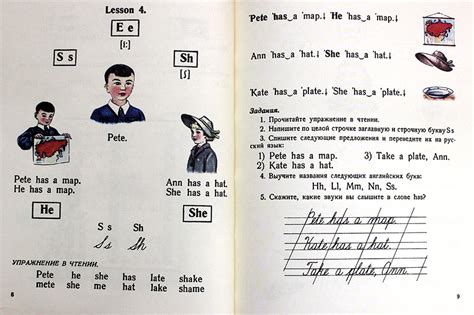 Lesson 4.
E e
[i:]
S s
Sh
[ʃ]
Pete.
Pete has a map.
He has a map.
Ann has a hat.
She has a hat.
He
She
S s Sh
S s Sh
УПРАЖНЕНИЕ В ЧТЕНИИ.
Pete he she has late shake
mete she me hat lake shame
8
'Pete 'has‿a 'map.↓ 'He 'has‿a 'map.↓
Ann 'has‿a 'hat.↓ 'She 'has‿a 'hat.↓
Kate 'has‿a 'plate.↓ 'She 'has‿a 'plate.↓
Задания.
1. Прочитайте упражнение в чтении.
2. Напишите по целой строчке заглавную и строчную букву Ss
3. Спишите следующие предложения и переведите их на рус-
ский язык:
1) Pete has a map. 3) Take a plate, Ann.
2) Kate has a hat.
4. Выучите названия следующих английских букв:
Hh, Ll, Mm, Nn, Ss.
5. Скажите, какие звуки вы слышите в слове has?
Pete has a map.
Kate has a hat.
Take a plate, Ann.
9